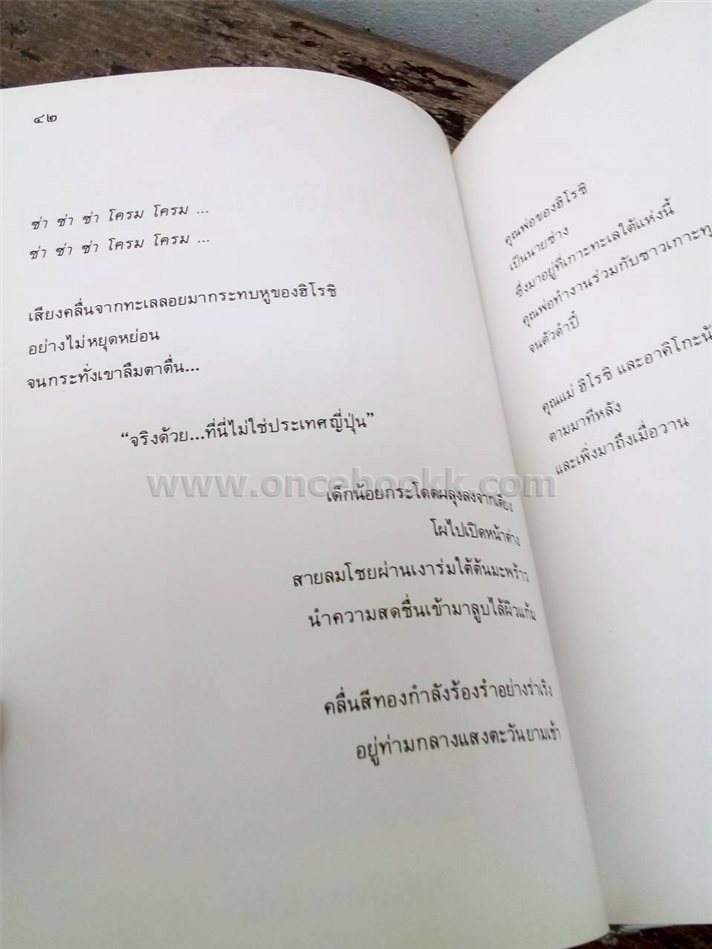 ๔๒
ซ่า ซ่า ซ่า โครม โครม ...
ซ่า ซ่า ซ่า โครม โครม ...
เสียงคลื่นจากทะเลลอยมากระทบหูของฮิโรชิ
อย่างไม่หยุดหย่อน
จนกระทั่งเขาลืมตาตื่น...
“จริงด้วย...ที่นี่ไม่ใช่ประเทศญี่ปุ่น”
เด็กน้อยกระโดดผลุงลงจากเตียง
โผไปเปิดหน้าต่าง
สายลมโชยผ่านเงาร่มใต้ต้นมะพร้าว
นำความสดชื่นเข้ามาลูบไล้ผิวแก้ม
คลื่นสีทองกำลังร้องรำอย่างร่าเริง
อยู่ท่ามกลางแสงตะวันยามเช้า
คุณพ่อของฮิโรชิ
เป็นนายช่าง
ซึ่งมาอยู่ที่เกาะทะเลใต้แห่งนี้
คุณพ่อทำงานร่วมกับชาวเกาะ
จนตัวดำปี๋
คุณแม่ ฮิโรชิ และอาคิโกะ
ตามมาทีหลัง
และเพิ่งมาถึงเมื่อวาน
www.oncebookk.com